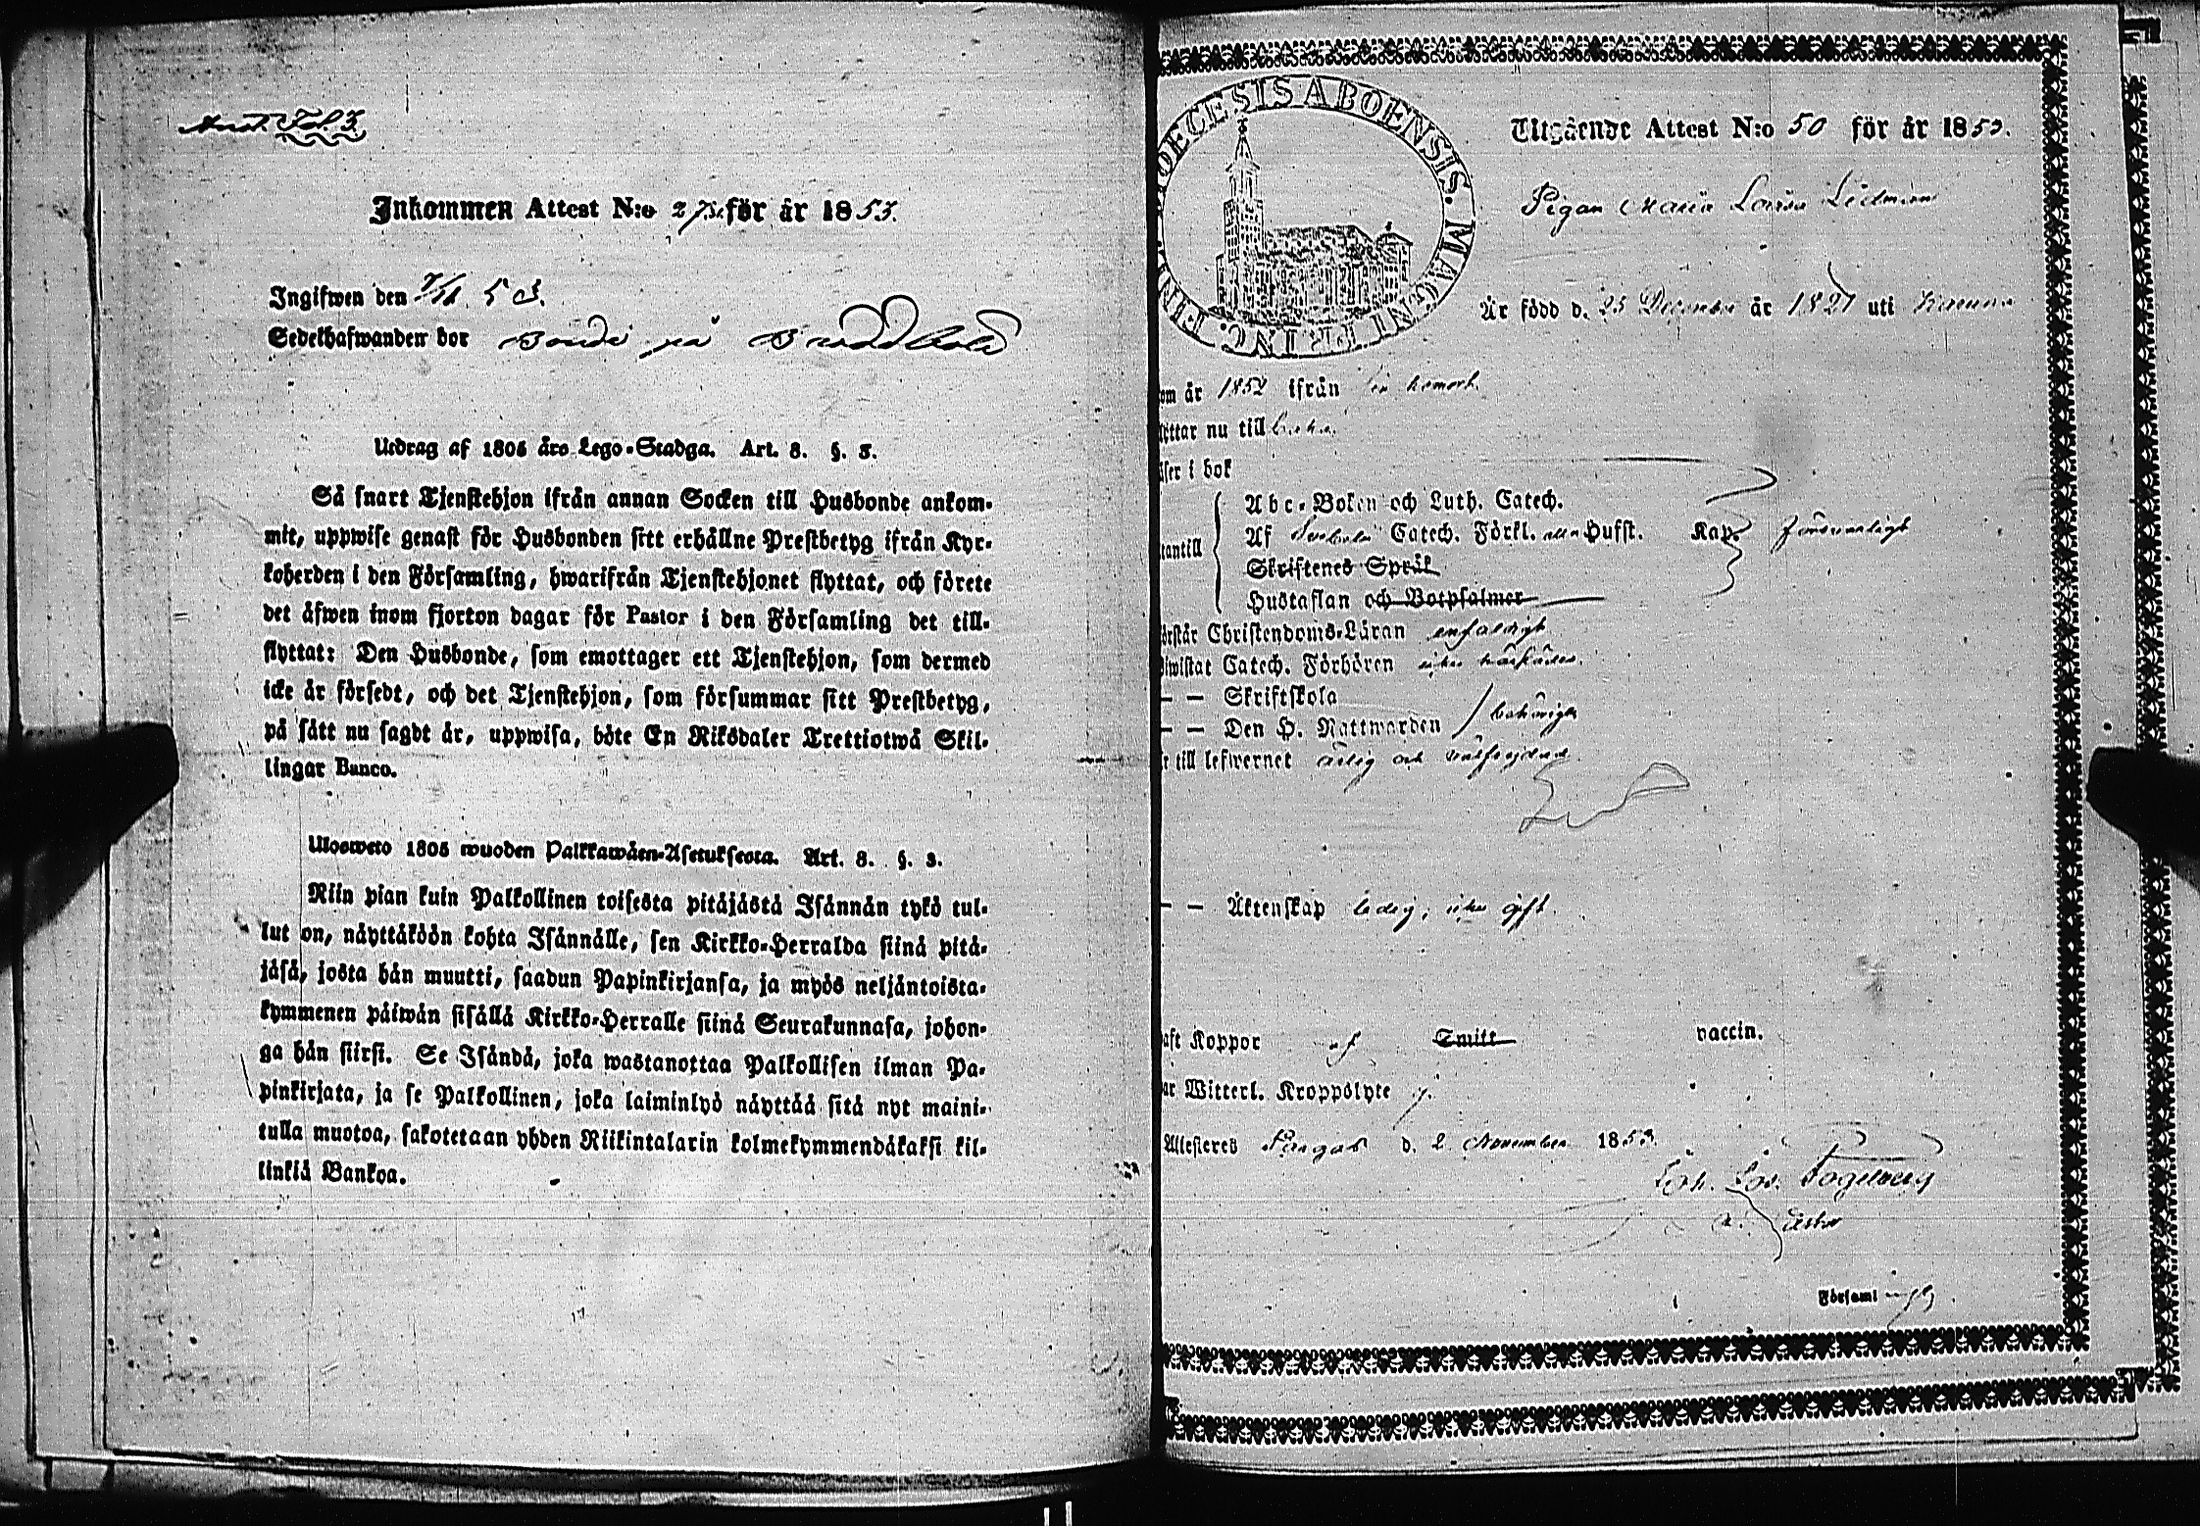 Inkommen Attest N:o för år 1853.
Ingifwen den 7/11 53.
Sedelhafwanden bor Bonde på
Utdrag af 1805 års Lego-Stadga. Art. 8. §. 3.
Så snart Tjenstehjon ifrån annan Socken till Husbonde ankom-
mit, uppwise genast för Husbonden sitt erhållne Prestbetyg ifrån Kyr-
koherden i den Församling, hwarifrån Tjenstehjonet flyttat, och förete
det åfwen inom fjorton dagar för Pastor i den Församling det till-
flyttat: Den Husbonde, som emottager ett Tjenstehjon, som dermed
icke är försedt, och det Tjenstehjon, som försummar sitt Prestbetyg,
på sätt nu sagdt är, uppwisa, böte En Riksdaler Trettiotwå Skil-
lingar Banco.
Ulosweto 1805 wuoden Palkkawäen-Asetuksesta. Art. 8. §. 3.
Niin pian kuin Palkollinen toisesta pitäjästä Isännän tykö tul-
lut on, näyttäköön kohta Isännälle, sen Kirkko-Herralda siinä pitä-
jäsä, josta hän muutti, saadun Papinkirjansa, ja myös neljäntoista-
kymmenen päiwän sisällä Kirkko-Herralle siinä Seurakunnasa, johon-
ga hän siirsi. Se Isändä, joka wastanottaa Palkollisen ilman Pa-
pinkirjata, ja se Palkollinen, joka laiminlyö näyttää sitä nyt maini-
tulla muotoa, sakotetaan yhden Riikintalarin kolmekymmendäkaksi kil-
linkiä Bankoa.
DIOECESIS ABOENSIS. MAGNI PRINC.
Utgående Attest N:o 50 för år 1853.
Pigan Maria Lovisa
Är född d. 25 December år 1821 uti
om år 1852 ifrån
ttar nu till
ser i bok
Abc-Boken och Luth. Catech.
Af Catech. Förkl. Hufst. Kap. försvarligt
antill
Skriftenes Språk
Hustaflan och Botpsalmer
rstår Christendoms-Läran enfaldigt
iwistat Catech. Förhören
– – Skriftskola
– – Den H. Nattwarden behörigen
r till lefwernet ärlig och
– – Äktenskap ledig, icke gift.
aft Koppor Smitt vaccin.
ar Witterl. Kroppslyte
Attesteres Pargas d. 2 November 1853
Församl